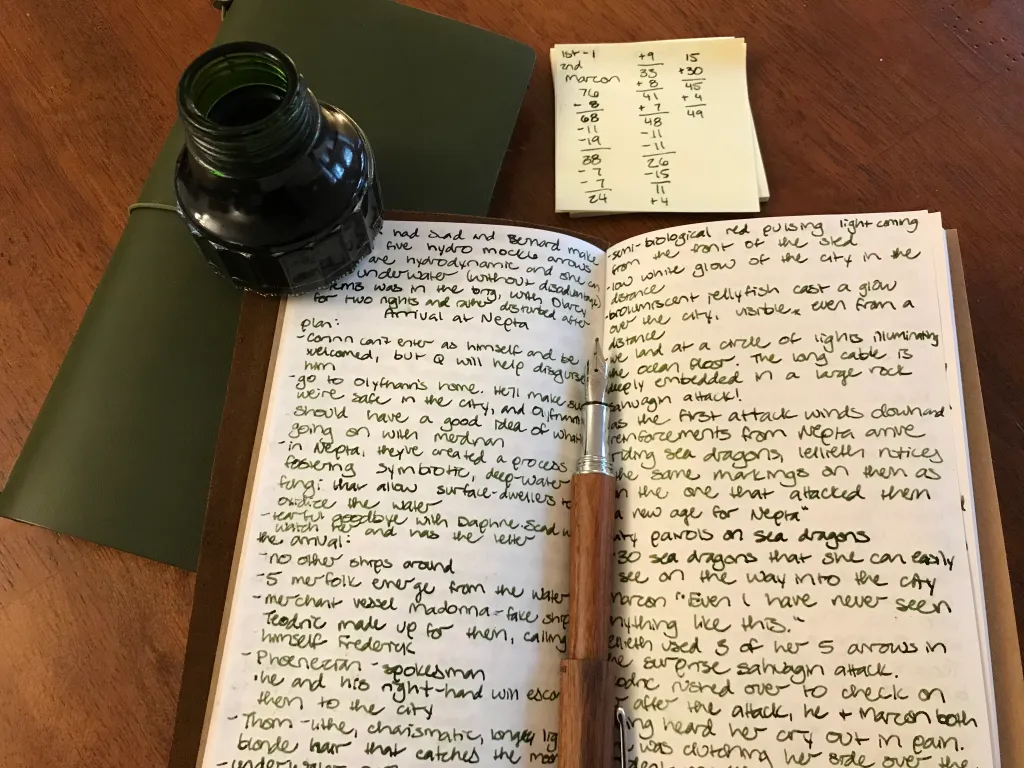 1st - 1
2nd
Marcon
76
- 8
68
- 11
- 19
38
- 7
- 7
24
+ 9
33
+ 8
41
+ 7
48
- 11
- 11
26
- 15
11
+ 4
15
+ 30
45
+ 4
49
had Suad and Bernard make
five hydro mockle arrows
are hydrodynamic and she can
underwater (without disadvantage)
was in the brig, with Darcy
for two nights and rather disturbed after
Arrival at Nepta
plan:
- can't enter as himself and be
welcomed, but Q will help disguise
him
- go to Olyfhann's home. He'll make sure
we're safe in the city, and
should have a good idea of what's
going on with
- in Nepta, they've created a process
fostering symbiotic, deep-water
fungi that allow surface-dwellers to
oxidize the water
- tearful goodbye with Daphne. Suad
watch her and has the letter
the arrival:
- no other ships around
- 5 merfolk emerge from the water
- merchant vessel Madonna - fake ship
Teodric made up for them, calling
himself Frederick
- Phoenezian - spokesman
· he and his right-hand will escort
them to the city
- Thom - lithe, charismatic, long
blonde hair that catches the
- semi-biological red pulsing light coming
from the front of the sled
- low white glow of the city in the
distance
jellyfish cast a glow
over the city, visible even from a
distance
we land at a circle of lights illuminating
the ocean floor. The long cable is
deeply embedded in a large rock
sahuagin attack!
as the first attack winds down and
reinforcements from Nepta arrive
riding sea dragons, notices
the same markings on them as
on the one that attacked them
"a new age for Nepta"
city patrols on sea dragons
30 sea dragons that she can easily
see on the way into the city
Marcon "Even I have never seen
anything like this."
used 3 of her 5 arrows in
the surprise sahuagin attack.
Teodric rushed over to check on
after the attack, he + Marcon both
heard her cry out in pain.
was clutching her side over the